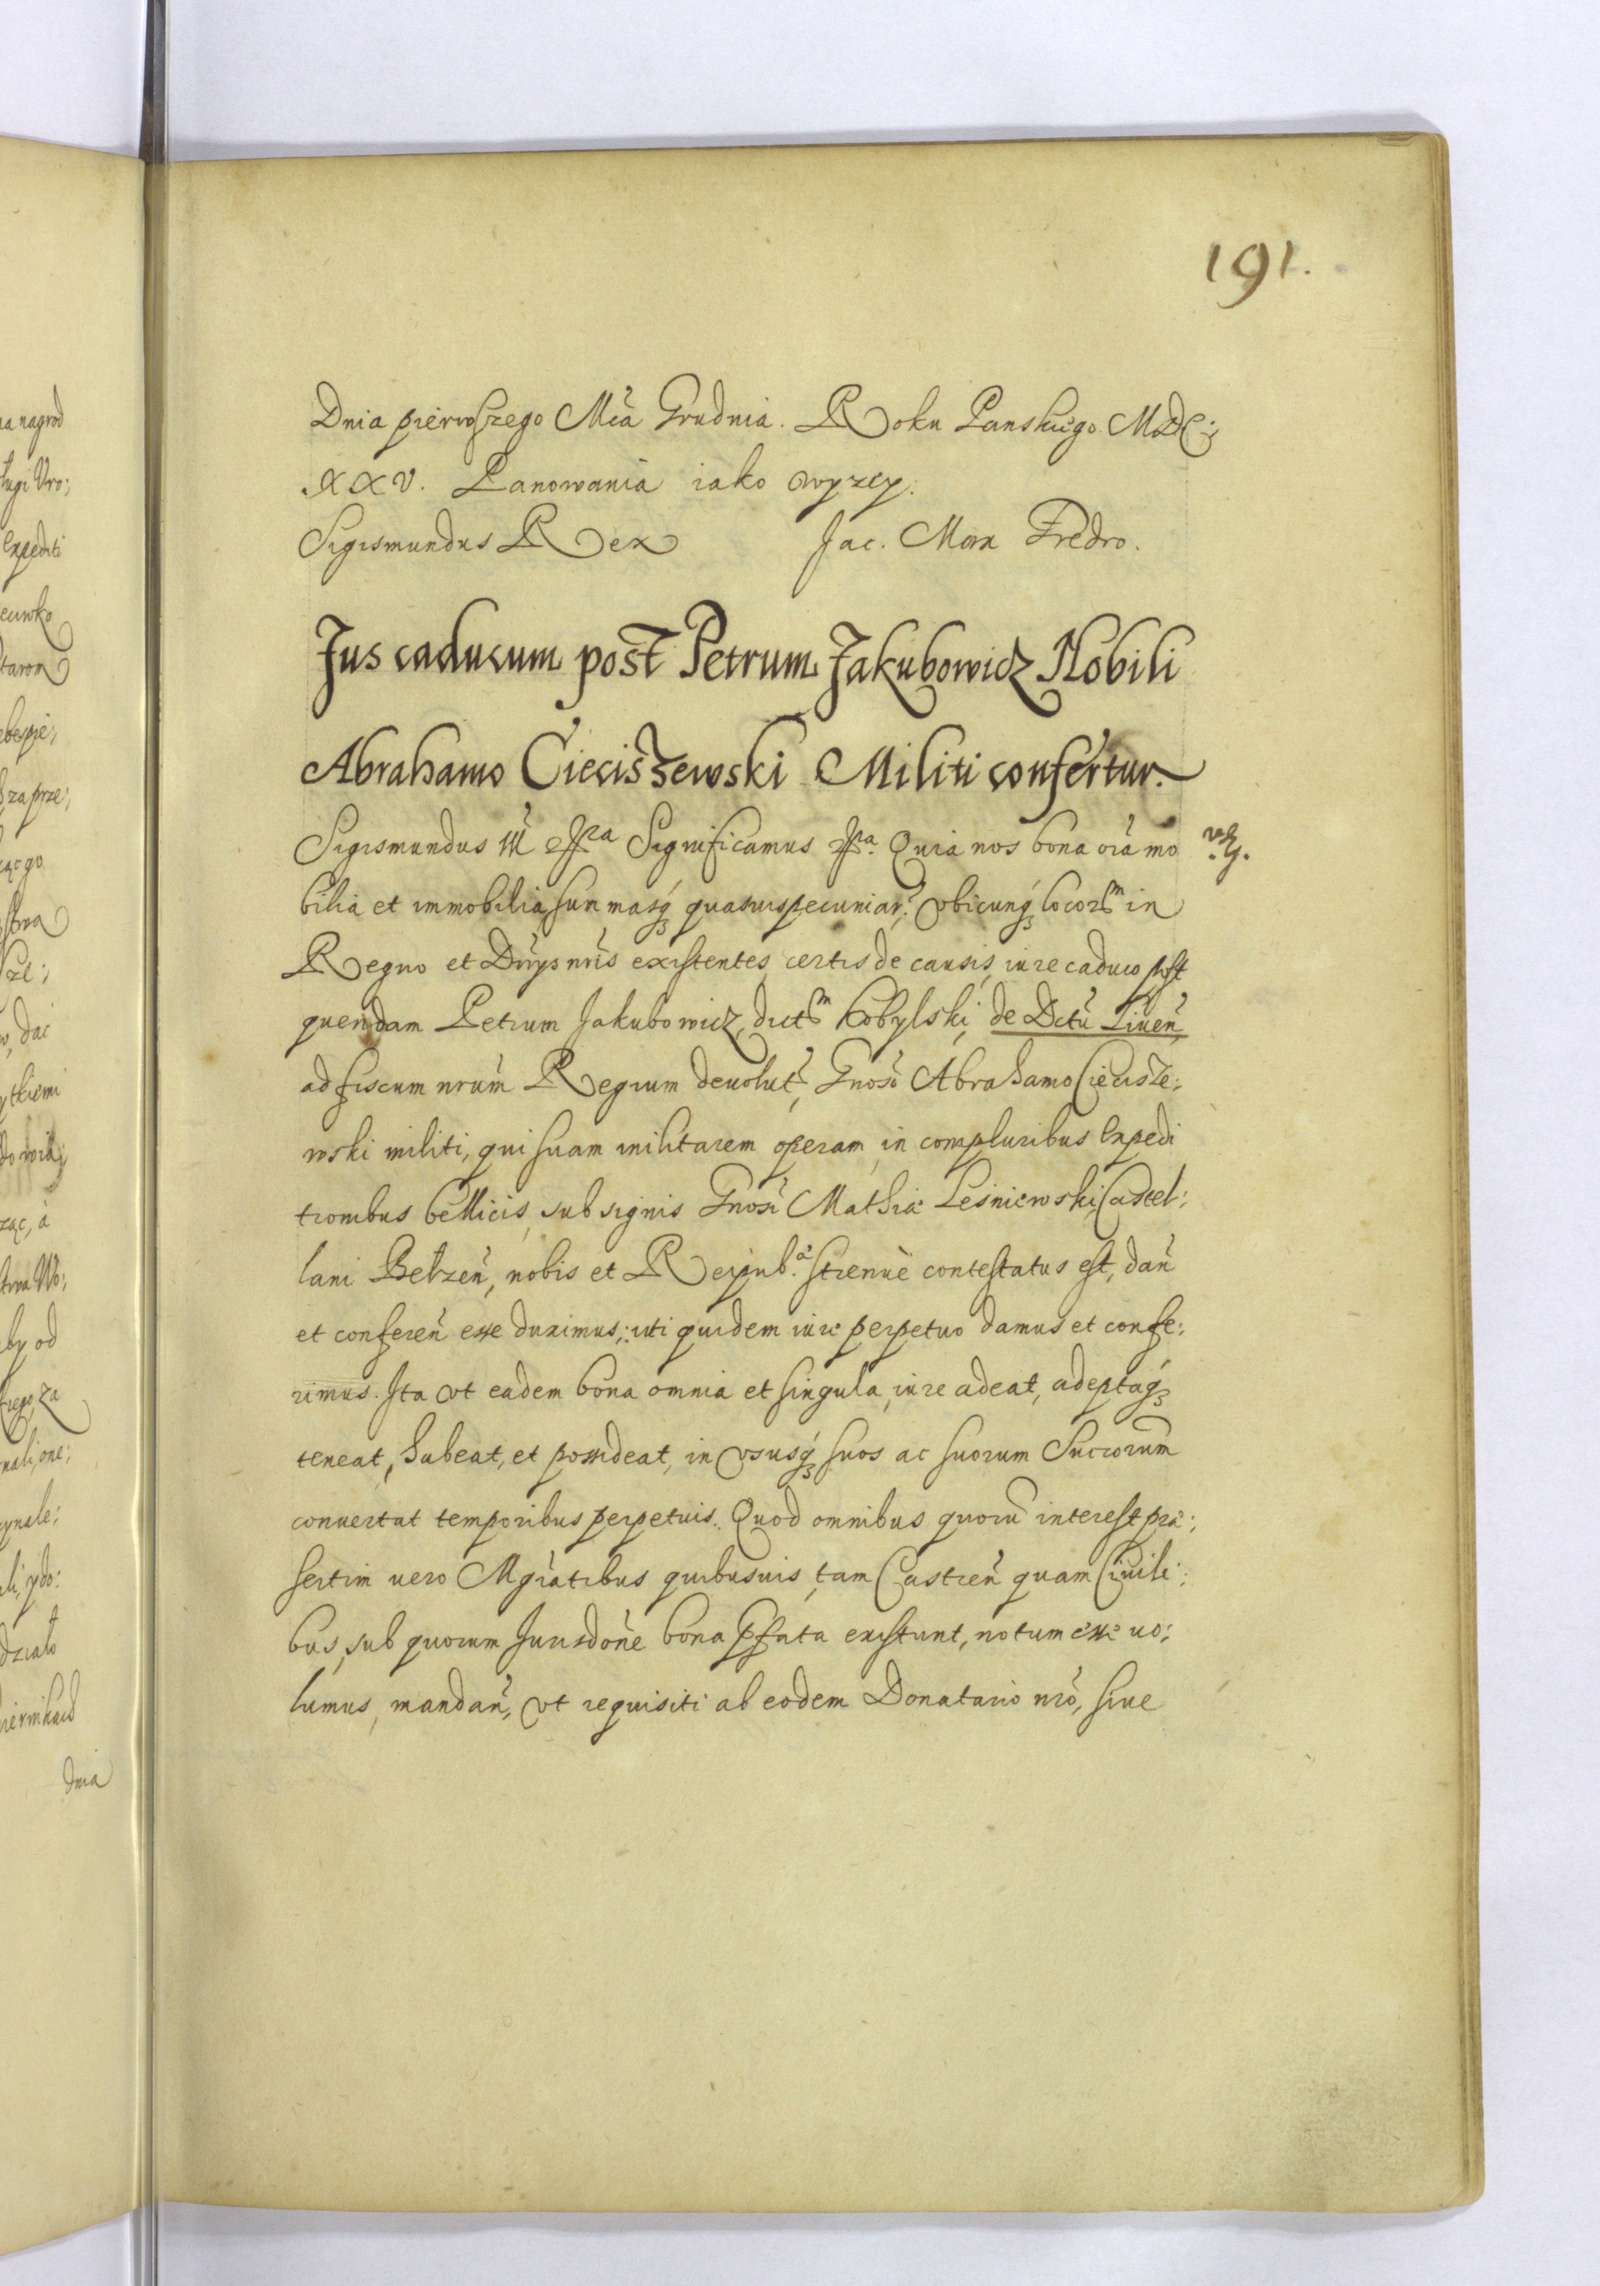 191.
Dnia pierwszego Mca Grudnia. Roku Panskiego MDC:
XXV. Panowania iako wyzey.
Sigismundus Rex Jac. Max Fredro.
Jus caducum post Petrum Jakubowicz Nobili
Abrahamo Cieciszewski Militi confertur.
Sigismundus III Significamus Quia nos bona oia mo
bilia et immobilia, summasq quasuis pecuniar, vbicunq locor in
Regno et Dnys nris existentes, certis de causis, iure caduco post
quendam Petrum Jakubowicz, dict Kobylski, de Dctu Liuen,
ad fiscum nrum Regium deuolut, Gnoso Abrahamo Ciecisze:
wski militi, qui suam militarem operam, in compluribus Expedi
tionibus bellicis, sub signis Gnosi Mathiæ Leśniewski, Castel:
lani Belzen, nobis et Reipub. strenuè contestatus est, dan
et conferen esse duximus; uti quidem iure perpetuo damus et confe:
rimus. Ita vt eadem bona omnia et singula, iure adeat, adeptaq
teneat, habeat, et possideat, in vsusq suos ac suorum Succrorum
conuertat temporibus perpetuis. Quod omnibus quoru interest præ:
sertim uero Mgratibus quibusuis, tam Castren quam Ciuili:
bus, sub quorum Jurisdone bona pfata existunt, notum esse uo:
lumus, mandan, vt requisiti ab eodem Donatario nro, siue
dnia